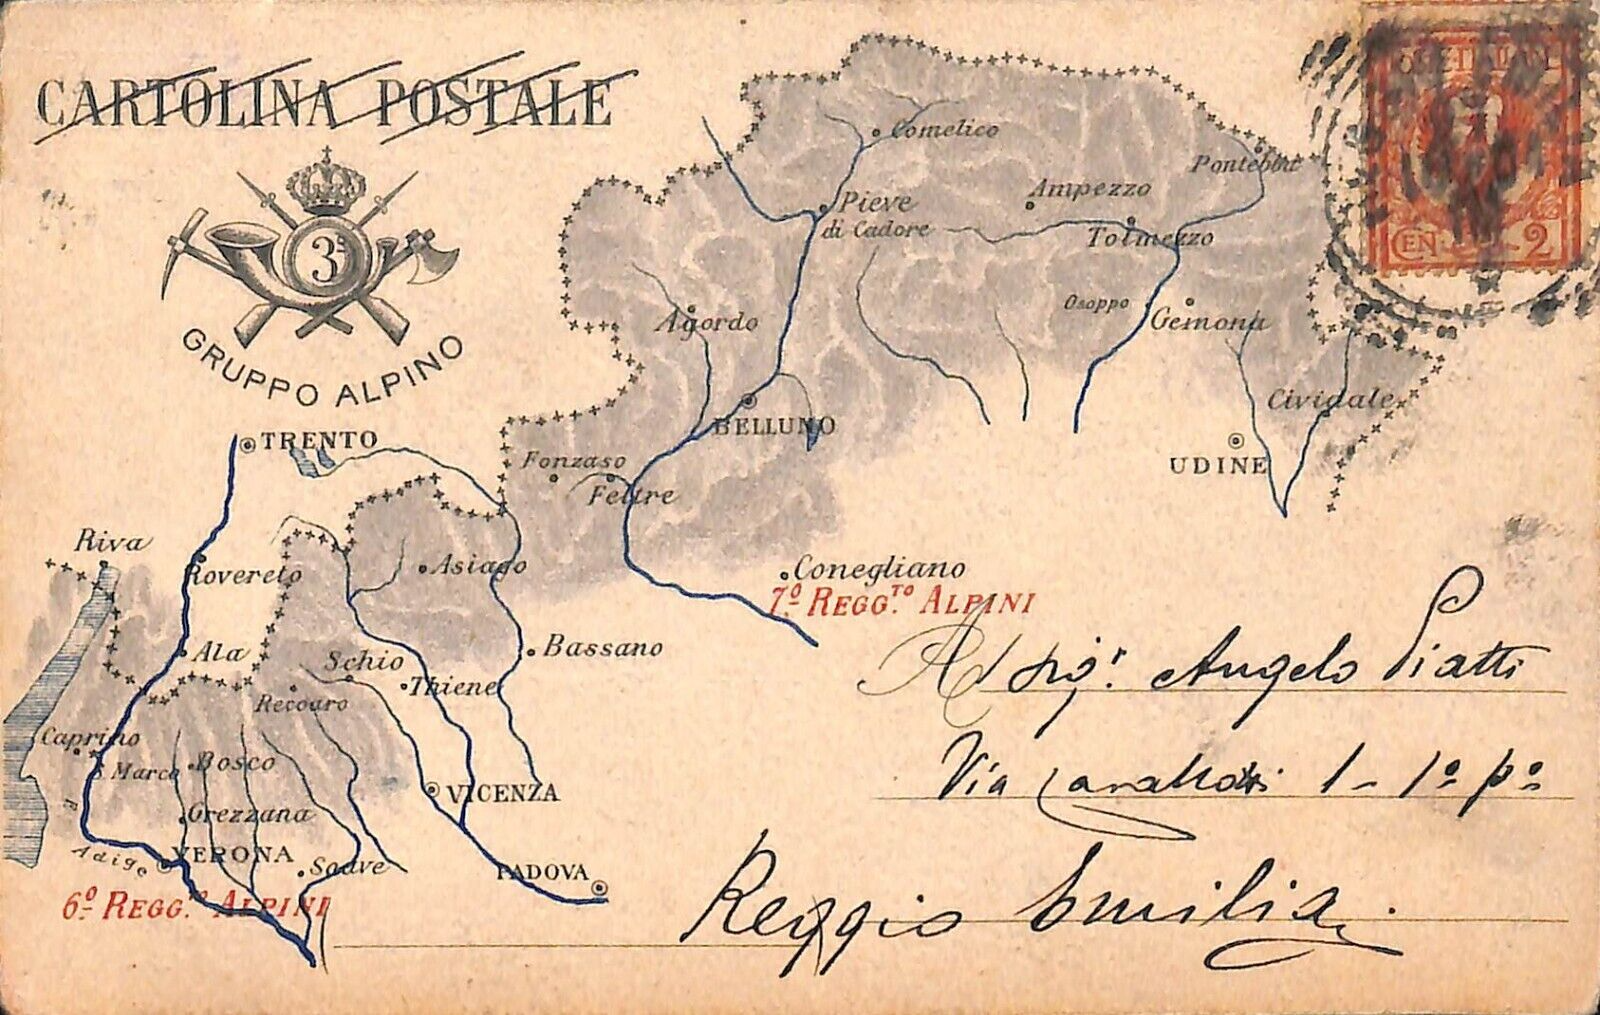 CARTOLINA POSTALE
3º
GRUPPO ALPINO
POSTE ITALIANE
CEN 2
Comelico
Pontebba
Pieve
di Cadore
Ampezzo
Tolmezzo
Osoppo
Gemona
Agordo
Cividale
BELLUNO
UDINE
TRENTO
Fonzaso
Feltre
Riva
Rovereto
Asiago
Conegliano
7º REGG.TO ALPINI
Ala
Schio
Bassano
Thiene
Recoaro
Caprino
S Marco
Bosco
VICENZA
Grezzana
F. Adige
VERONA
Soave
PADOVA
6º REGG.TO ALPINI
Al Sig.r Angelo Piatti
Via 1 - 1º pº
Reggio Emilia.